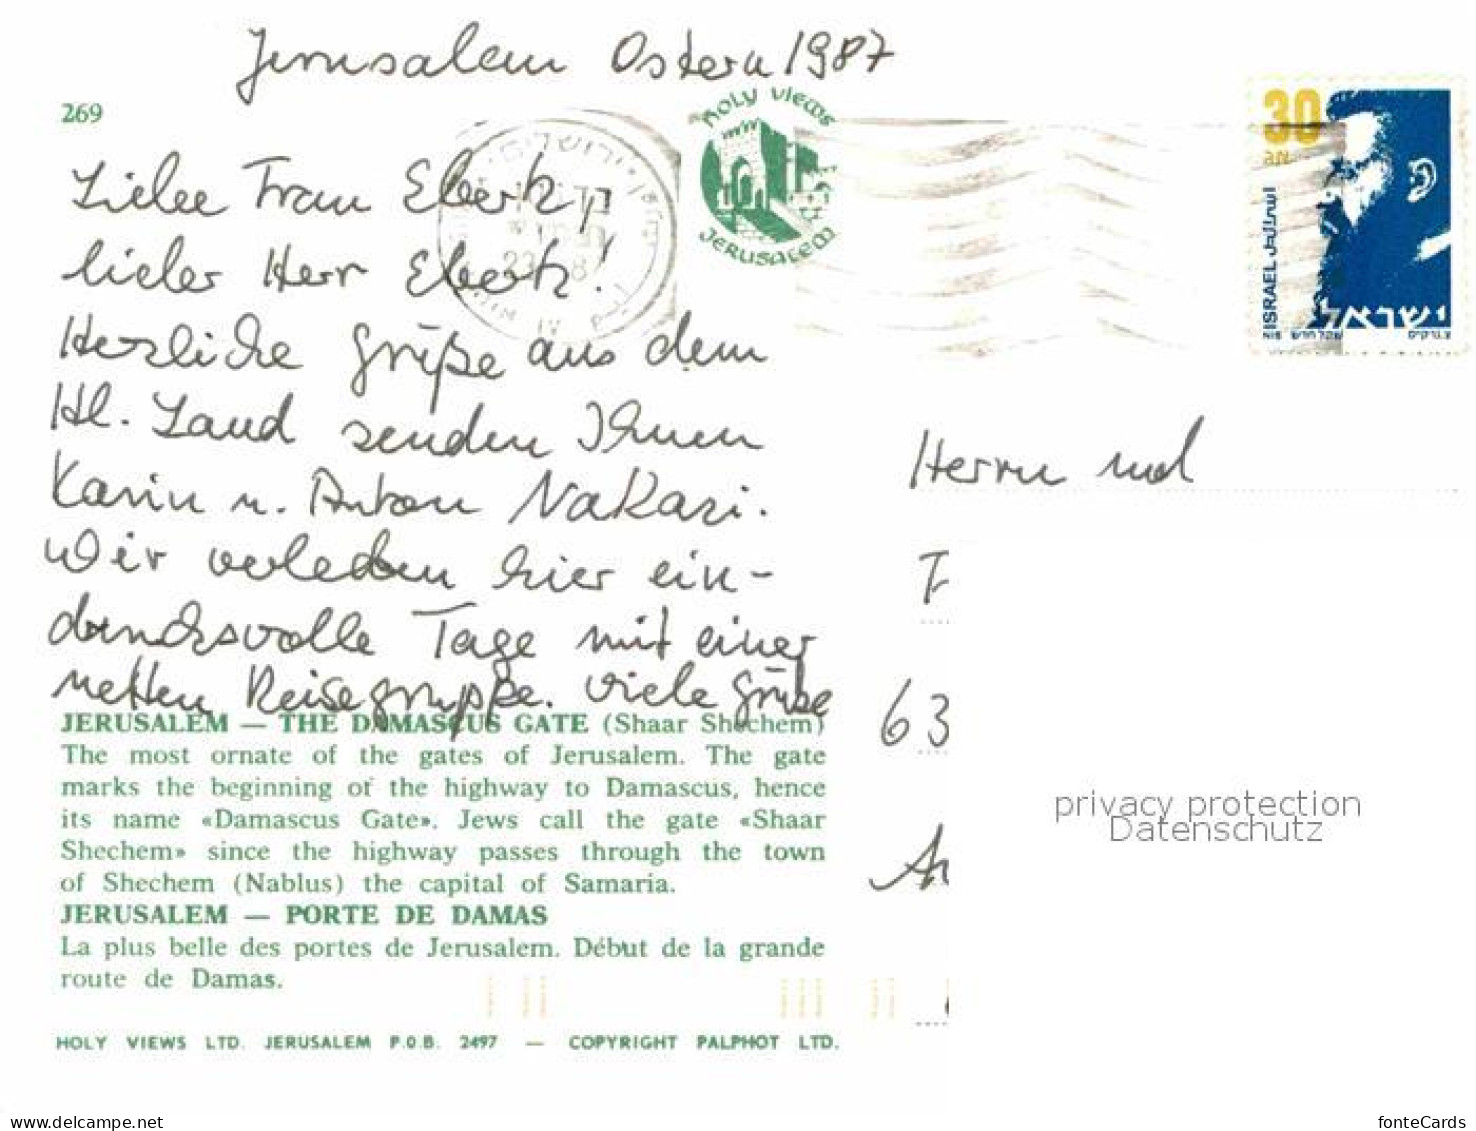 Jerusalem Ostern 1987
269
HOLY VIEWS
JERUSALEM
30
ISRAEL إسرائيل
ישראל
Liebe Frau Ebertz,
lieber Herr Ebertz!
Herzliche Grüße aus dem
Hl. Land senden Ihnen
Karin u. Anton Nakari.
Wir verleben hier ein-
drucksvolle Tage mit einer
netten Reisegruppe. Viele Grüße
JERUSALEM — THE DAMASCUS GATE (Shaar Shechem)
The most ornate of the gates of Jerusalem. The gate
marks the beginning of the highway to Damascus, hence
its name «Damascus Gate». Jews call the gate «Shaar
Shechem» since the highway passes through the town
of Shechem (Nablus) the capital of Samaria.
JERUSALEM — PORTE DE DAMAS
La plus belle des portes de Jerusalem. Début de la grande
route de Damas.
HOLY VIEWS LTD. JERUSALEM P.O.B. 2497 — COPYRIGHT PALPHOT LTD.
Herrn und
63
privacy protection
Datenschutz
www.delcampe.net
fonteCards